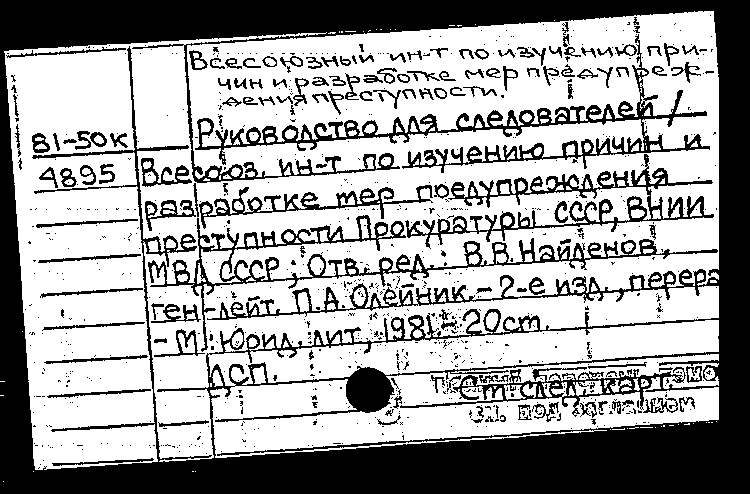 Всесоюзный ин-т по изучению при-
чин и разработке мер предупреж-
дения преступности.
81-50к Руководство для следователей /
4895 Всесоюз. ин-т по изучению причин и
разработке мер поедупреждения
преступности Прокуратуры СССР, ВНИИ
МВД СССР; Отв. ред.: В.В. Найденов,
ген-лейт. П.А. Олейник. - 2-е изд., перера
- М.: Юрид. лит, 1981. - 20см.
ДСП.
См. след. карт.
см. под заглавием